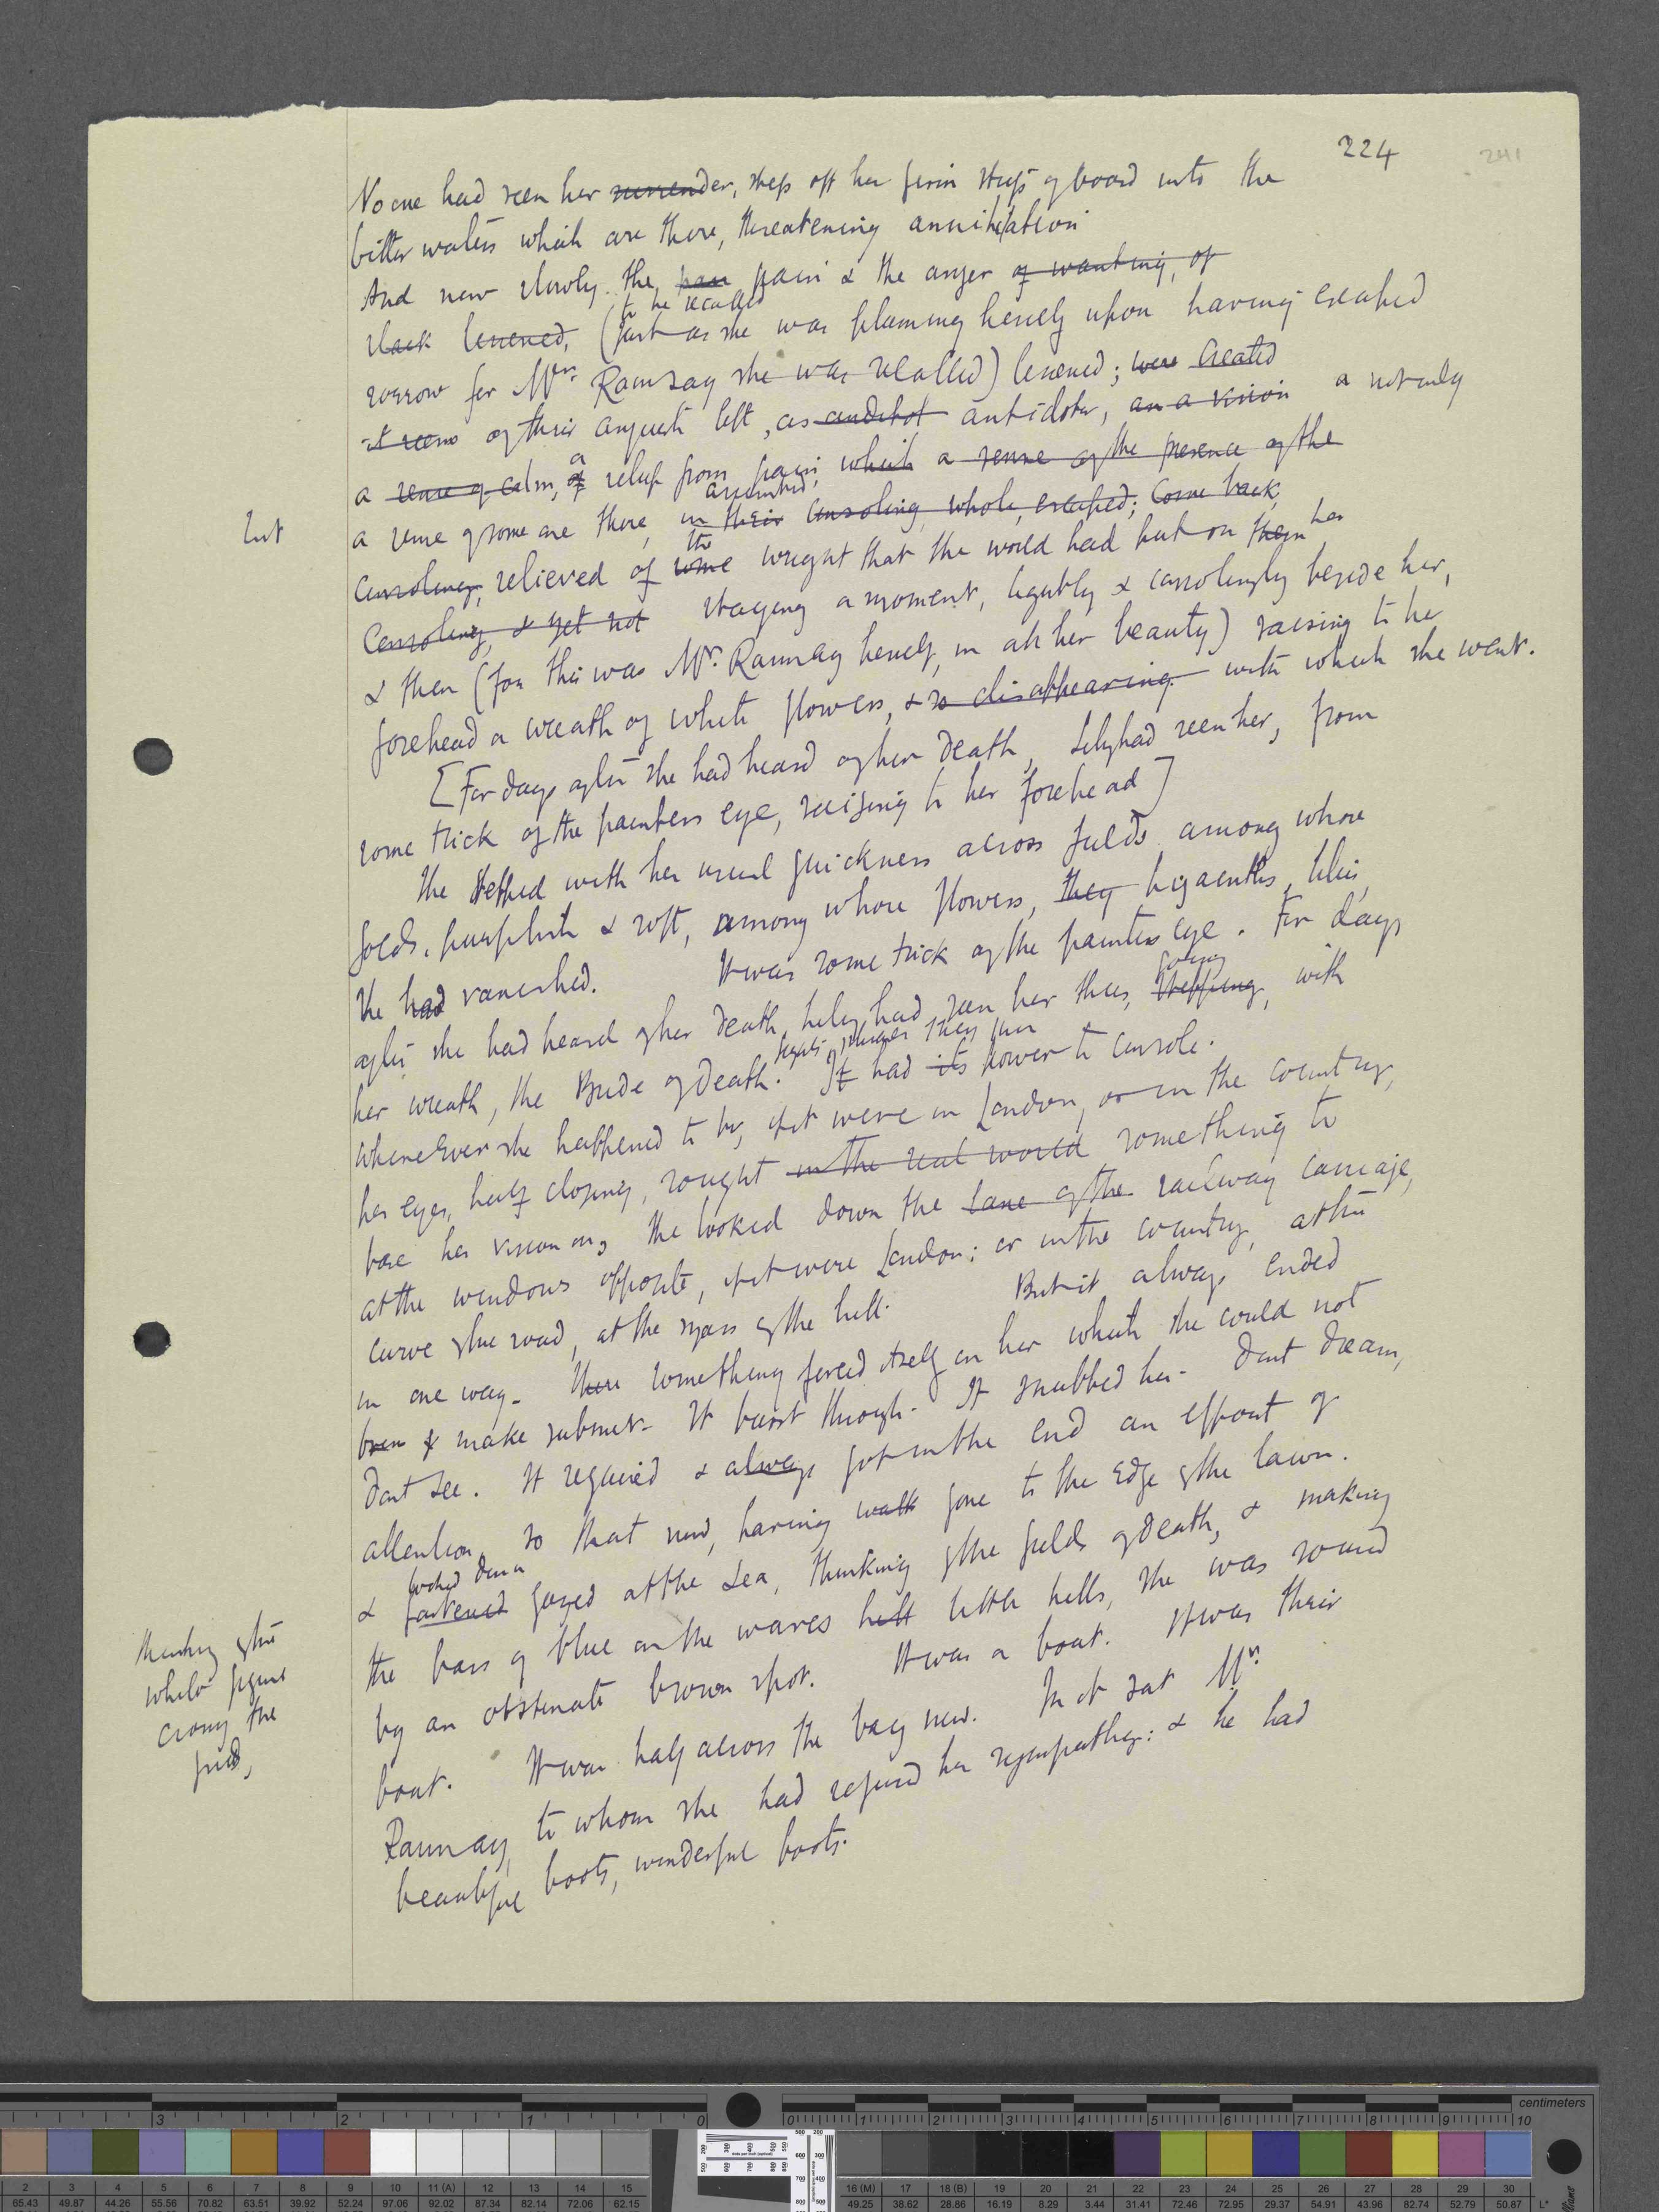 224
241
No one had seen her surrender, step off her firm strip of board into the
bitter waters which are there, threatening annihilation
And now slowly the pain & the anger of wanting, of
to be recalled
slack lessened, (just as she was pluming herself upon having escaped
sorrow for Mrs. Ramsay she was recalled) lessened; were created
of their anguish left, as antidote, as a vision a not only
a sense of calm, of a relief from pain, which a sense of the presence of the
but a sense of some one there, in their assumed consoling, whole, escaped; come back,
consoling, relieved of some the weight that the world had put on them her
Consoling, & yet not staying a moment, lightly & consolingly beside her,
& then (for this was Mrs. Ramsay herself, in all her beauty) raising to her
forehead a wreath of white flowers, & so disappearing with which she went.
[For days after she had heard of her death, Lily had seen her, from
some trick of the painters eye, raising to her forehead]
She stepped with her usual quickness across fields among whose
folds, purplish & soft, among whose flowers, they hyacinths, lilies,
she had vanished. It was some trick of the painters eye. For days
after she had heard of her death, Lily had seen her thus, stepping going, with
her wreath, the Bride of Death. It had its power to console.
Wherever she happened to be, if it were in London, or in the country,
her eyes, half closing, sought in the real world something to
base her vision on, She looked down the lane of the railway carriage,
at the windows opposite, if it were London; or in the country, at the
curve of the road, at the mass of the hill. But it always ended
in one way. There something forced itself on her which she could not
& make submit. It burst through. It snubbed her. Dont dream,
Dont see. It required & always got in the end an effort of
attention, so that now, having walk gone to the edge of the lawn.
looked down
& fastened gazed at the sea, thinking of the fields of death, & making
the bars of blue on the waves hill little hills, she was roused
by an obstinate brown spot. It was a boat. It was their
boat. It was half across the bay now. In it sat Mr.
Ramsay, to whom she had refused her sympathy: & he had
beautiful boots, wonderful boots.
thinking of the
white figure
among the
field,
centimeters